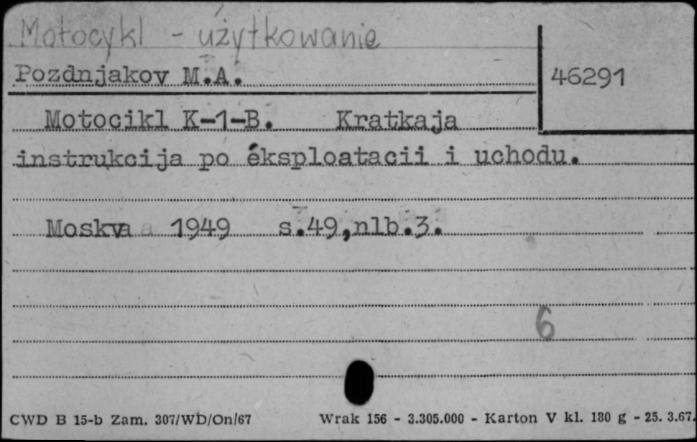 Motocykl - użytkowanie
Pozdnjakov M.A.
46291
Motocikl K-1-B. Kratkaja
instrukcija po éksploatacii i uchodu.
Moskva 1949 s.49,nlb.3.
6
CWD B 15-b Zam. 307/WD/On/67 Wrak 156 - 3.305.000 - Karton V kl. 180 g - 25. 3.67.